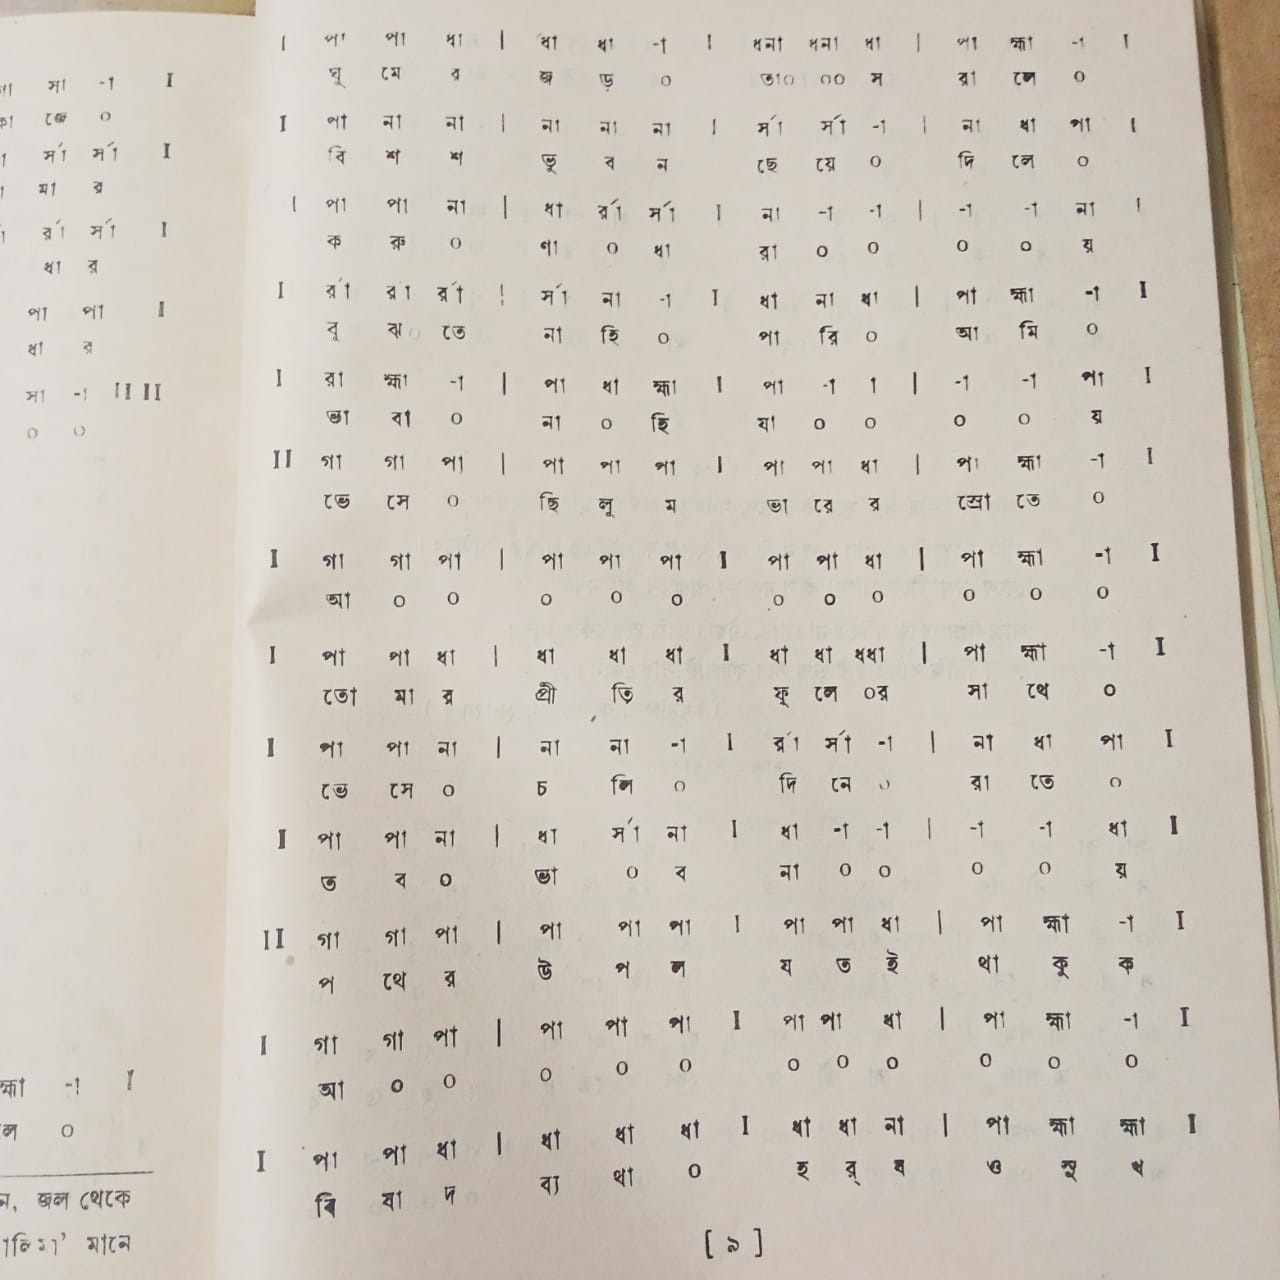 সা -া I
জে ০
র্সা র্সা I
মা র
র্রা র্সা I
ধা র
পা পা I
ধা র
সা -া II II
০ ০
হ্মা -া I
লে ০
ন, জল থেকে
মানে
I পা পা ধা | ধা ধা -া I ধনা ধনা ধা | পা হ্মা -া I
ঘু মে র জ ড় ০ তা০ ০০ স রা লে ০
I পা না না | না না না I র্সা র্সা -া | না ধা পা I
বি শ্ শ ভু ব ন ছে য়ে ০ দি লে ০
I পা পা না | ধা র্রা র্সা I না -া -া | -া -া না I
ক রু ০ ণা ০ ধা রা ০ ০ ০ ০ য়
I র্রা র্রা র্রা | র্সা না -া I ধা না ধা | পা হ্মা -া I
বু ঝ তে না হি ০ পা রি ০ আ মি ০
I রা হ্মা -া | পা ধা হ্মা I পা -া া | -া -া পা I
ভা বা ০ না ০ হি যা ০ ০ ০ ০ য়
II গা গা পা | পা পা পা I পা পা ধা | পা হ্মা -া I
ভে সে ০ ছি লু ম ভা বে র স্রো তে ০
I গা গা পা | পা পা পা I পা পা ধা | পা হ্মা -া I
আ ০ ০ ০ ০ ০ ০ ০ ০ ০ ০ ০
I পা পা ধা | ধা ধা ধা I ধা ধা ধধা | পা হ্মা -া I
তো মা র প্রী তি র ফু লে ০র সা থে ০
I পা পা না | না না -া I র্রা র্সা -া | না ধা পা I
ভে সে ০ চ লি ০ দি নে ০ রা তে ০
I পা পা না | ধা র্সা না I ধা -া -া | -া -া ধা I
ত ব ০ ভা ০ ব না ০ ০ ০ ০ য়
II গা গা পা | পা পা পা I পা পা ধা | পা হ্মা -া I
প থে র উ প ল য ত ই থা কু ক
I গা গা পা | পা পা পা I পা পা ধা | পা হ্মা -া I
আ ০ ০ ০ ০ ০ ০ ০ ০ ০ ০ ০
I পা পা ধা | ধা ধা ধা I ধা ধা না | পা হ্মা হ্মা I
বি ষা দ ব্য থা ০ হ র্ ষ ও সু খ
[ ৯ ]